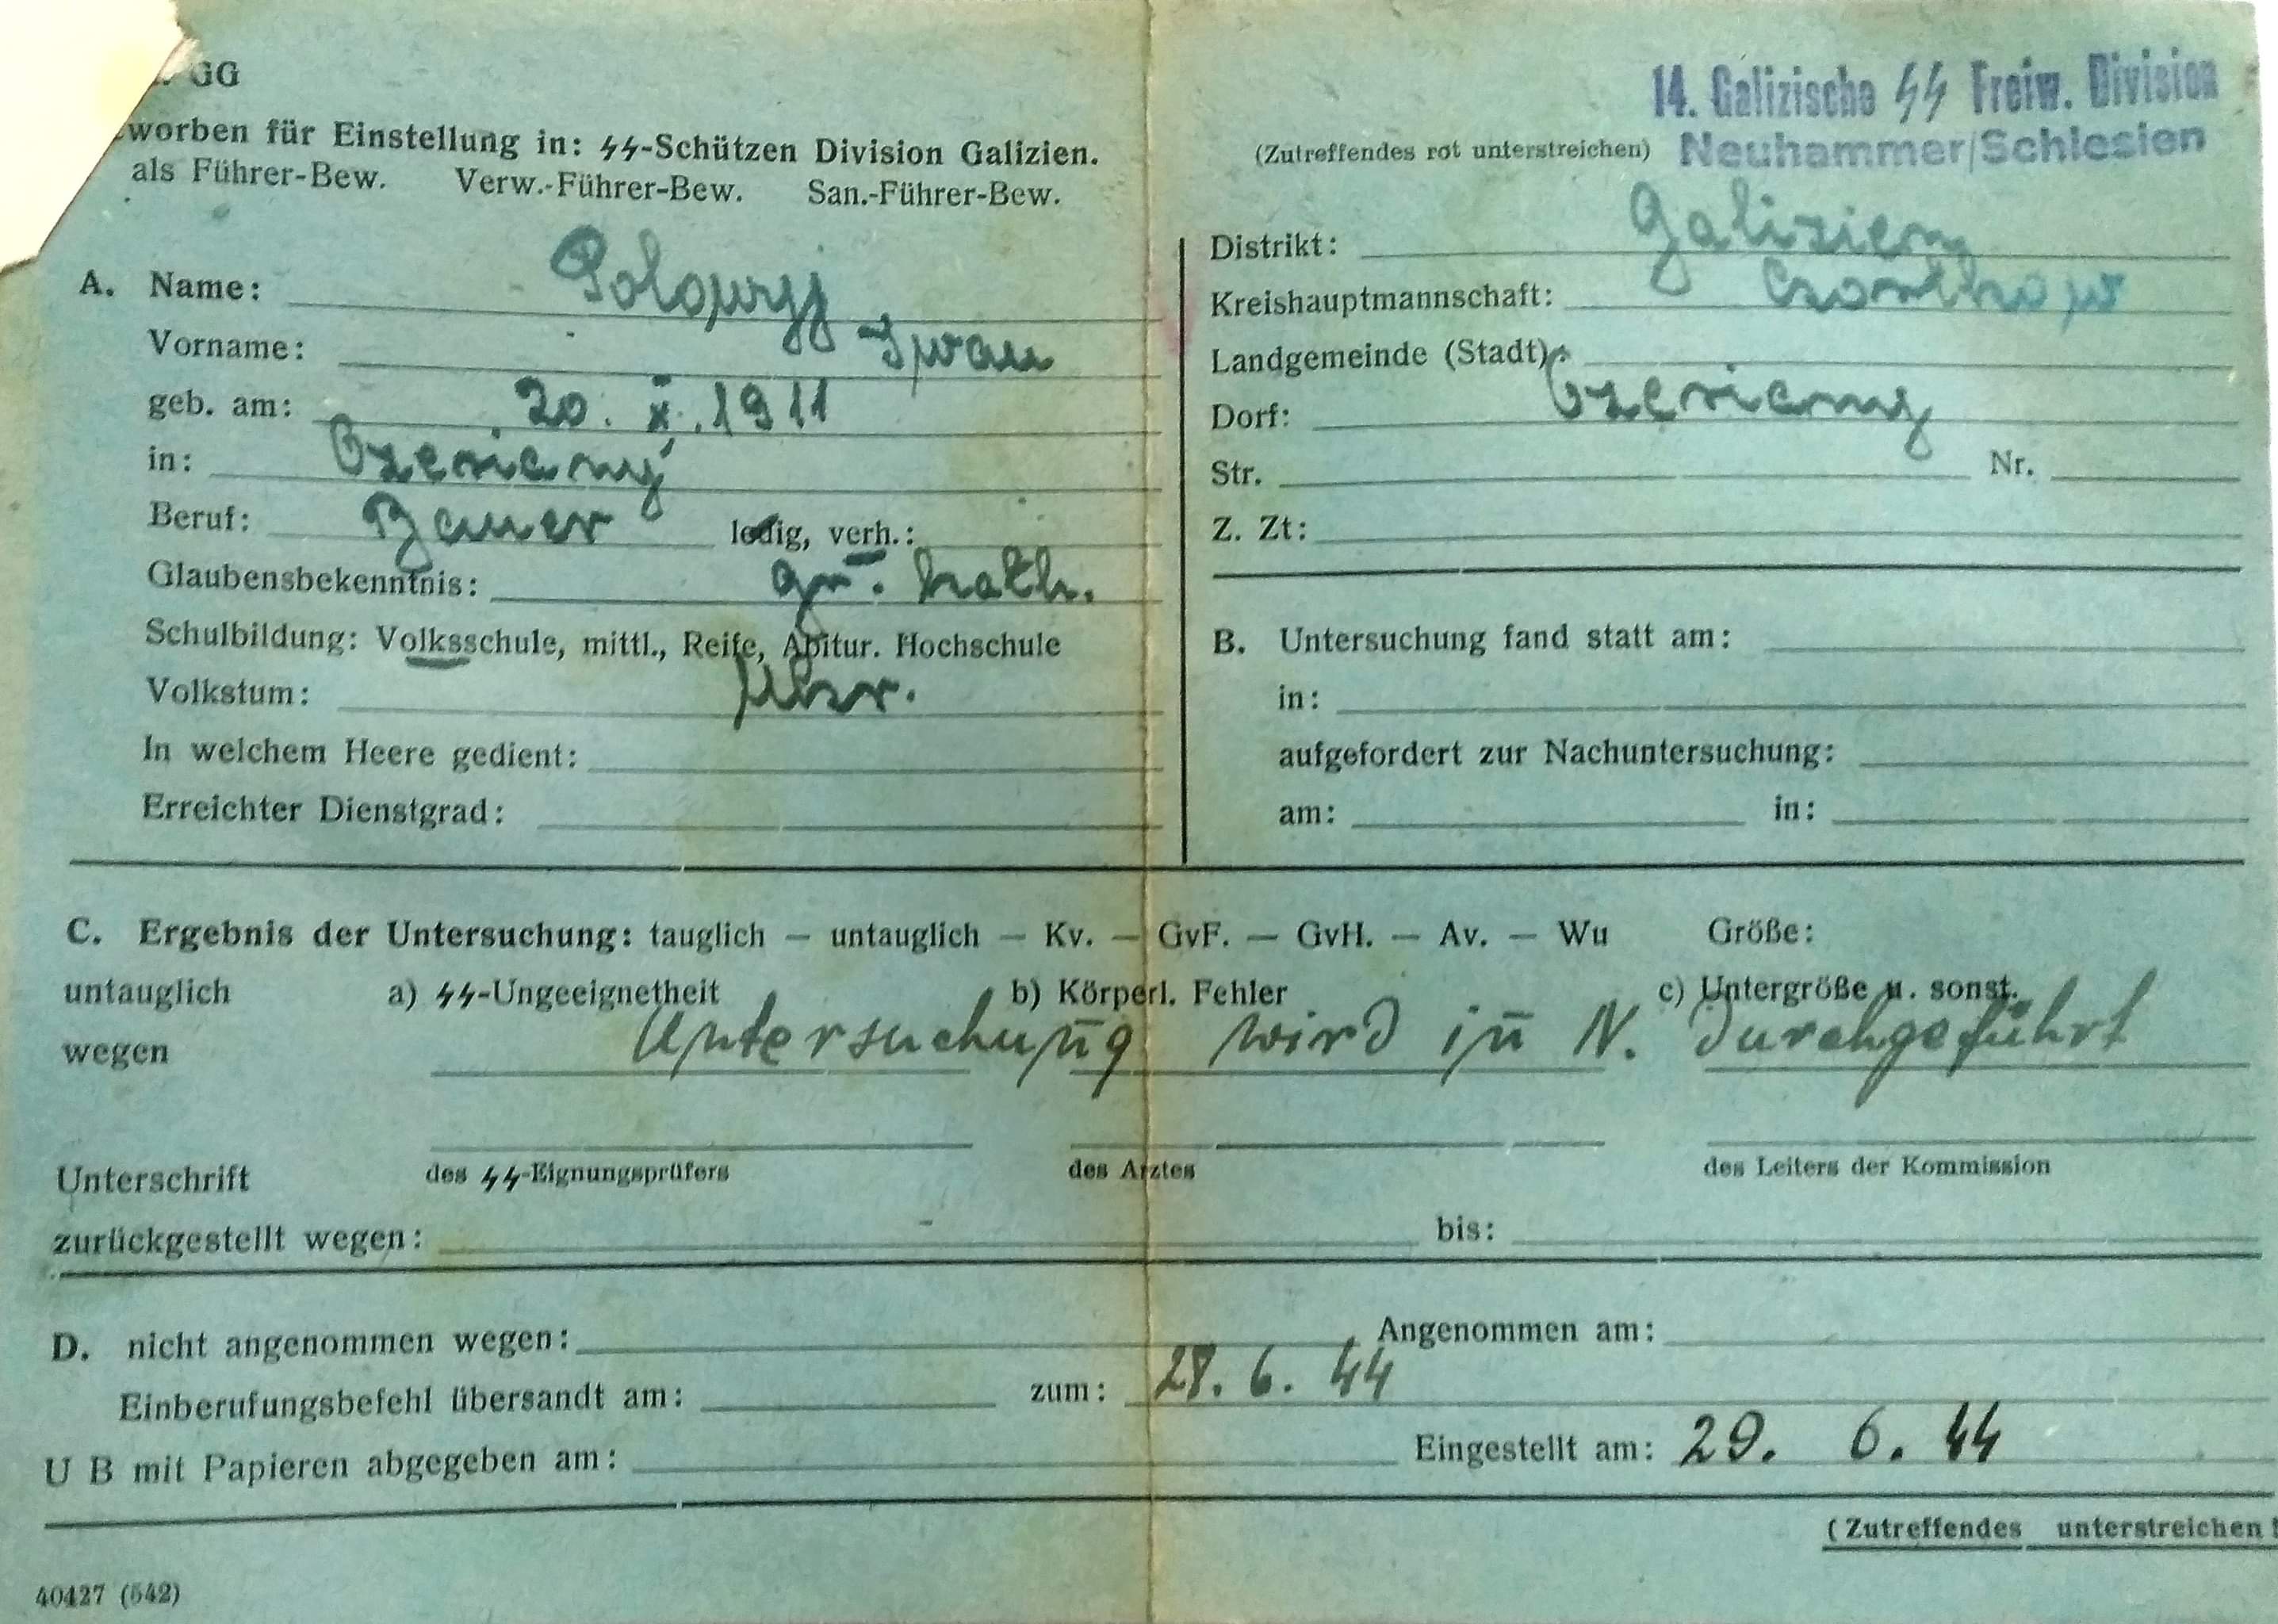 GG
14. Galizische ᛋᛋ Freiw. Division
Neuhammer/Schlesien
worben für Einstellung in: ᛋᛋ-Schützen Division Galizien.
(Zutreffendes rot unterstreichen)
als Führer-Bew. Verw.-Führer-Bew. San.-Führer-Bew.
A. Name:
Vorname: Iwan
geb. am: 20. X. 1911
in: Ozeriany
Beruf: Bauer ledig, verh.:
Glaubensbekenntnis: gr. kath.
Schulbildung: Volksschule, mittl., Reife, Abitur. Hochschule
Volkstum: Ukr.
In welchem Heere gedient:
Erreichter Dienstgrad:
Distrikt: Galizien
Kreishauptmannschaft: Czortkow
Landgemeinde (Stadt):
Dorf: Ozeriany
Str. Nr.
Z. Zt:
B. Untersuchung fand statt am:
in:
aufgefordert zur Nachuntersuchung:
am: in:
C. Ergebnis der Untersuchung: tauglich — untauglich — Kv. — GvF. — GvH. — Av. — Wu Größe:
untauglich a) ᛋᛋ-Ungeeignetheit b) Körperl. Fehler c) Untergröße u. sonst.
wegen Untersuchung wird in N. durchgeführt
Unterschrift des ᛋᛋ-Eignungsprüfers des Arztes des Leiters der Kommission
zurückgestellt wegen: bis:
D. nicht angenommen wegen: Angenommen am:
Einberufungsbefehl übersandt am: zum: 28. 6. 44
U B mit Papieren abgegeben am: Eingestellt am: 29. 6. 44
(Zutreffendes unterstreichen!
40427 (542)